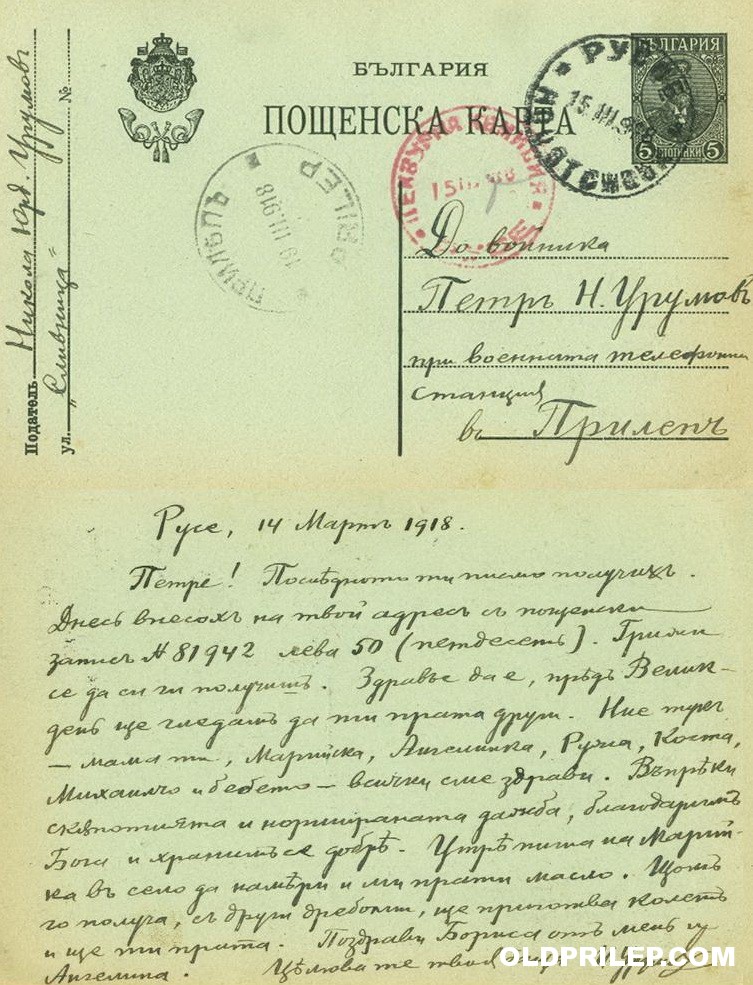 БЪЛГАРИЯ
ПОЩЕНСКА КАРТА
БЪЛГАРИЯ
5 СТОТИНКИ 5
15.III.918
15 III 918
ПРИЛѢПЪ
PRILEP
19.III.918
Податель Никола Юрд. Урумовъ
ул. „Сливница" №
До войника
Петръ Н. Урумовъ
при военната телефонна
станция
въ Прилепъ
Русе, 14 Мартъ 1918.
Петре! Последното ти писмо получихъ.
Днесъ внесохъ на твой адресъ съ пощенски
записъ № 81942 лева 50 (петдесеть). Грижи
се да си ги получишъ. Здравье да е, прѣдъ Велик-
день ще гледамъ да ти пратя други. Ние тукъ
— мама ти, Марийка, Ангелинка, Ружа, Коста,
Михаилчо и бебето — всички сме здрави. Въпрѣки
скѫпотията и нормираната дажба, благодаримъ
Бога и хранимъ се добрѣ. Утрѣ пиша на Марий-
ка въ село да намѣри и ми прати масло. Щомъ
го получа, съ други дреболии, ще приготвя колетъ
и ще ти пратя. Поздрави Бориса отъ мень и
Ангелина. Цѣлува те твоя
OLDPRILEP.COM